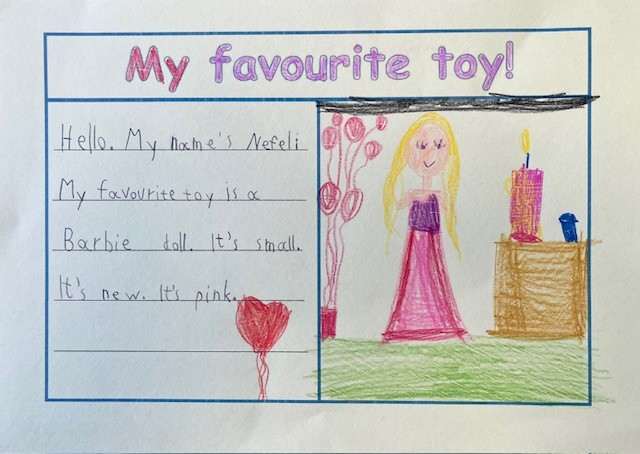 My favourite toy!
Hello. My name's Nefeli
My favourite toy is a
Barbie doll. It's small.
It's new. It's pink.